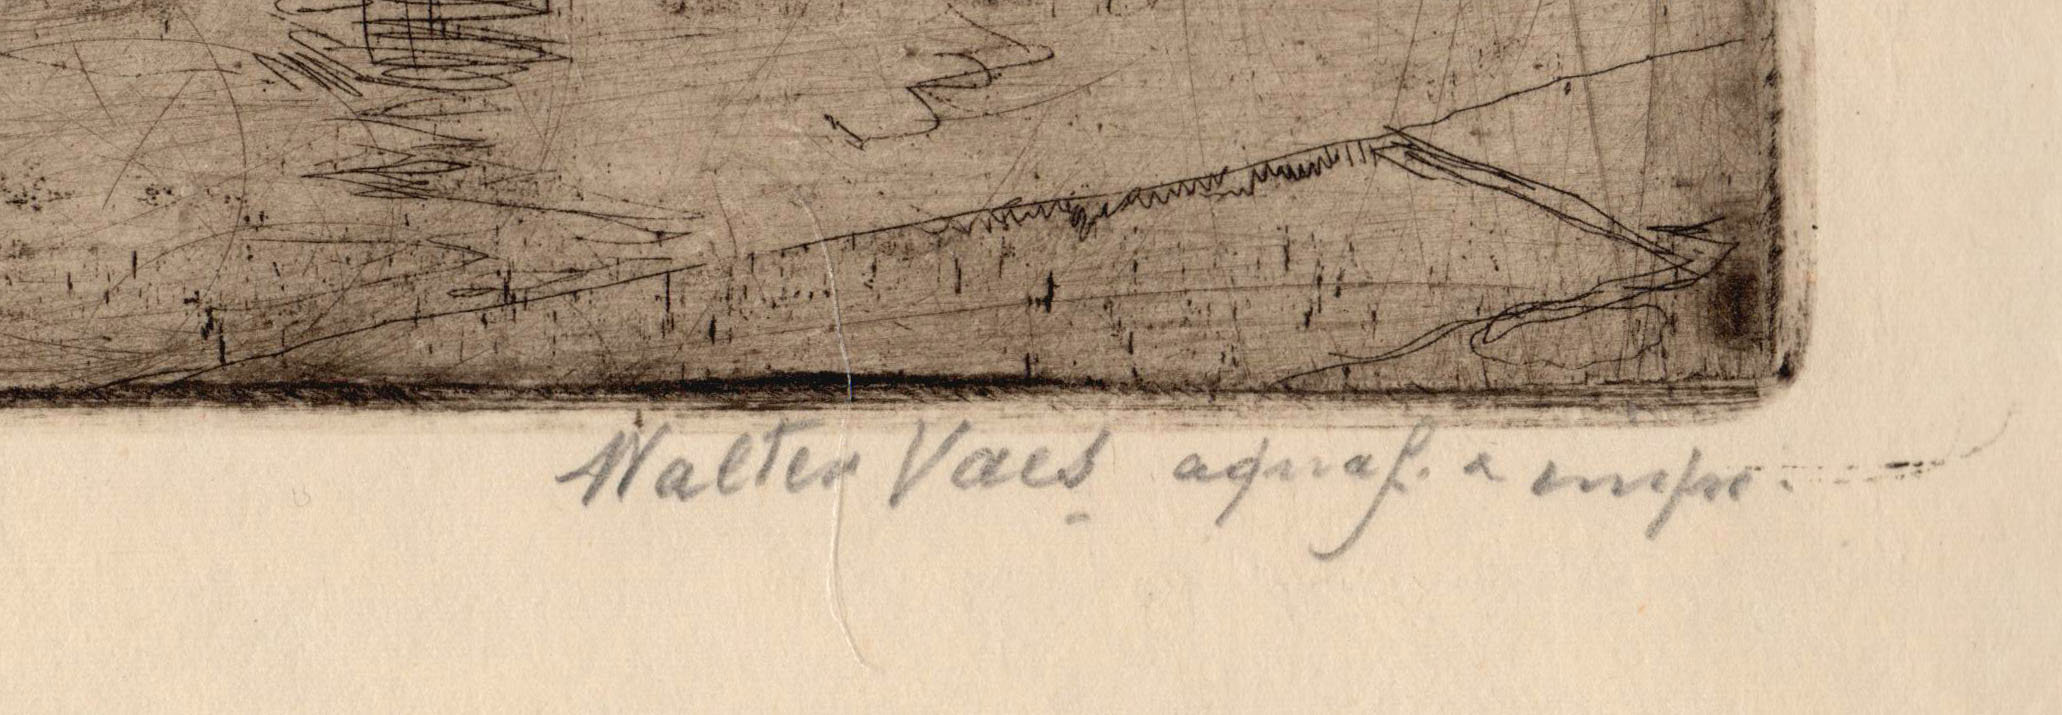 Walter Vaes aquaf. & impr.